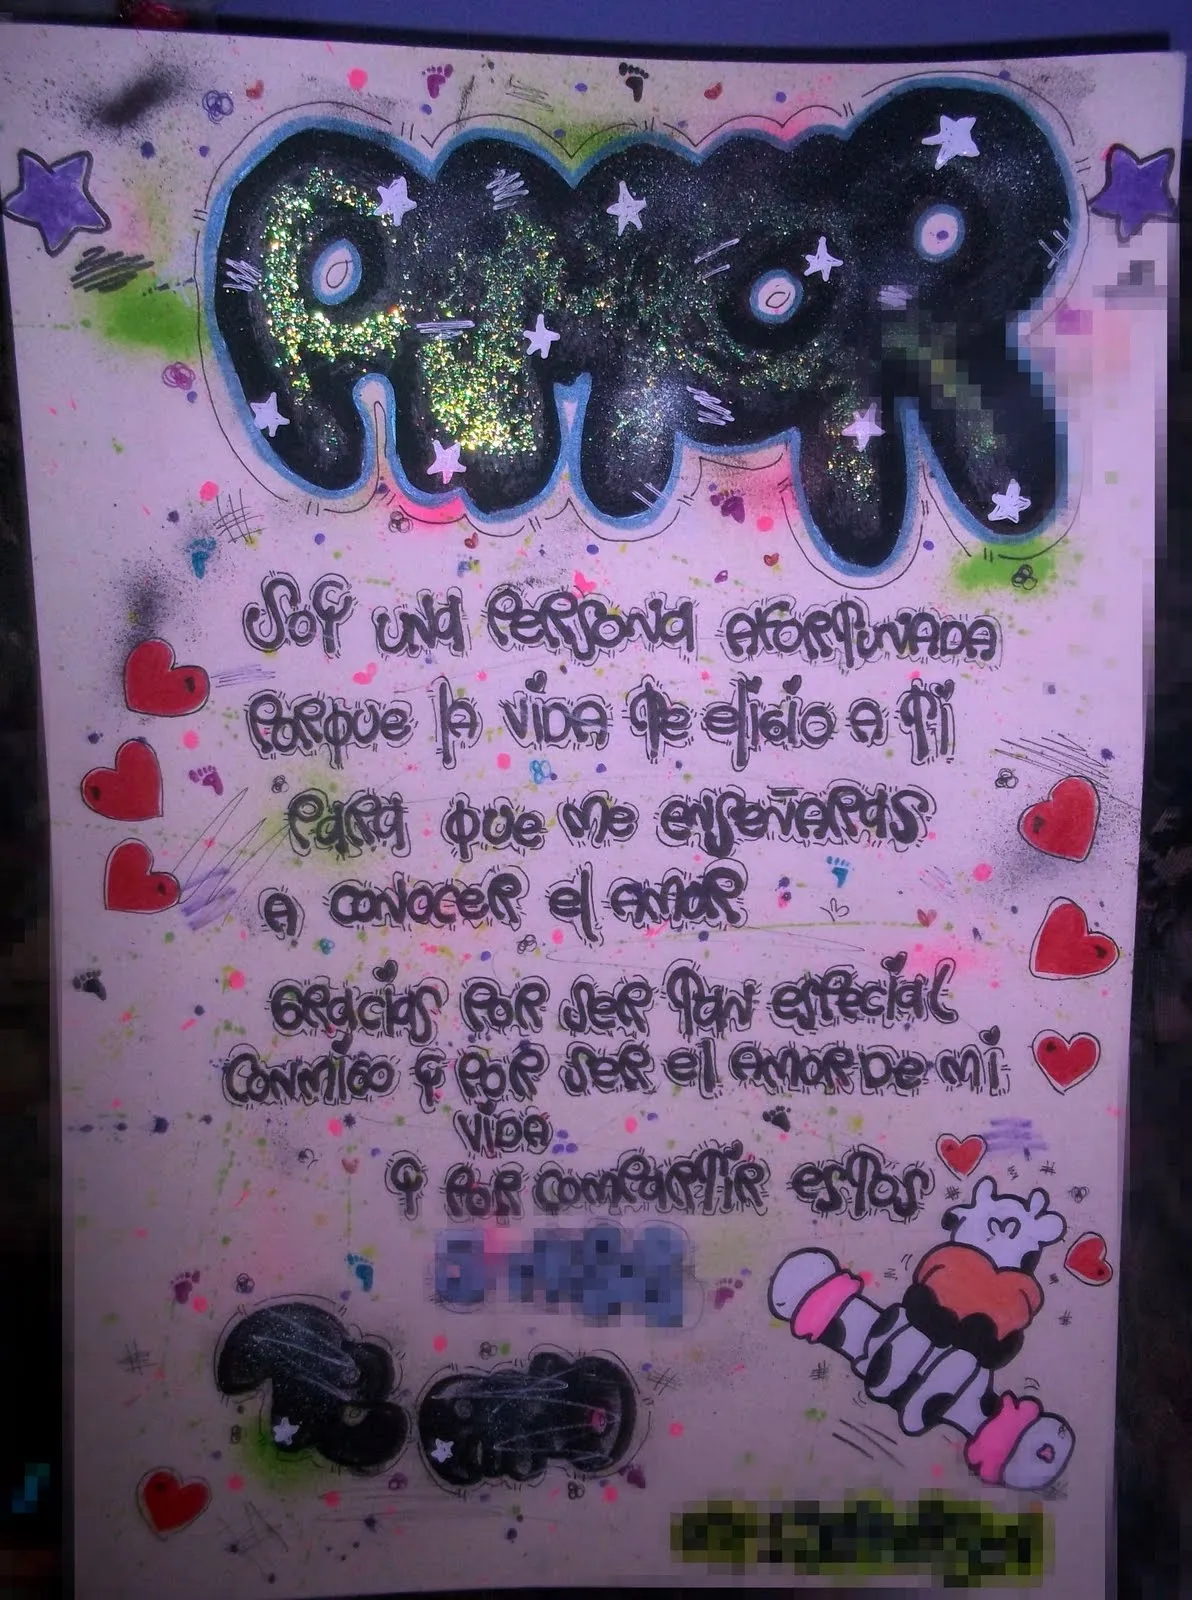 AMOR
SOY UNA PERSONA AFORTUNADA
PORQUE LA VIDA TE ELIGIO A TI
PARA QUE ME ENSEÑARAS
A CONOCER EL AMOR
GRACIAS POR SER TAN ESPECIAL
CONMIGO Y POR SER EL AMOR DE MI
VIDA
Y POR COMPARTIR ESTOS
TE AMO